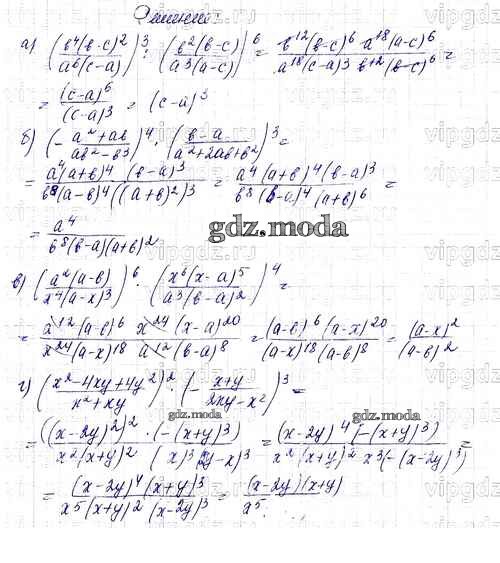 а) (b⁴(b-c)²/a⁶(c-a))³ : (b²(b-c)/a³(a-c))⁶ = b¹²(b-c)⁶ a¹⁸(a-c)⁶/a¹⁸(c-a)³ b¹²(b-c)⁶ =
= (c-a)⁶/(c-a)³ = (c-a)³
б) (-a²+ab/ab²-b³)⁴ · (b-a/a²+2ab+b²)³ =
= a⁴(a+b)⁴ (b-a)³/b⁸(a-b)⁴((a+b)²)³ = a⁴(a+b)⁴(b-a)³/b⁸(b-a)⁴(a+b)⁶ =
= a⁴/b⁸(b-a)(a+b)²
gdz.moda
в) (a²(a-b)/x⁴(a-x)³)⁶ · (x⁶(x-a)⁵/a³(b-a)²)⁴ =
= a¹²(a-b)⁶ x²⁴(x-a)²⁰/x²⁴(a-x)¹⁸ a¹²(b-a)⁸ = (a-b)⁶(a-x)²⁰/(a-x)¹⁸(a-b)⁸ = (a-x)²/(a-b)²
г) (x²-4xy+4y²/x²+xy)² : (-x+y/2xy-x²)³ =
gdz.moda
= ((x-2y)²)² · (-(x+y)³)/x²(x+y)² (x)³(2y-x)³ = (x-2y)⁴(-(x+y)³)/x²(x+y)² x³(-(x-2y)³) =
= (x-2y)⁴(x+y)³/x⁵(x+y)²(x-2y)³ = (x-2y)(x+y)/x⁵
gdz.moda